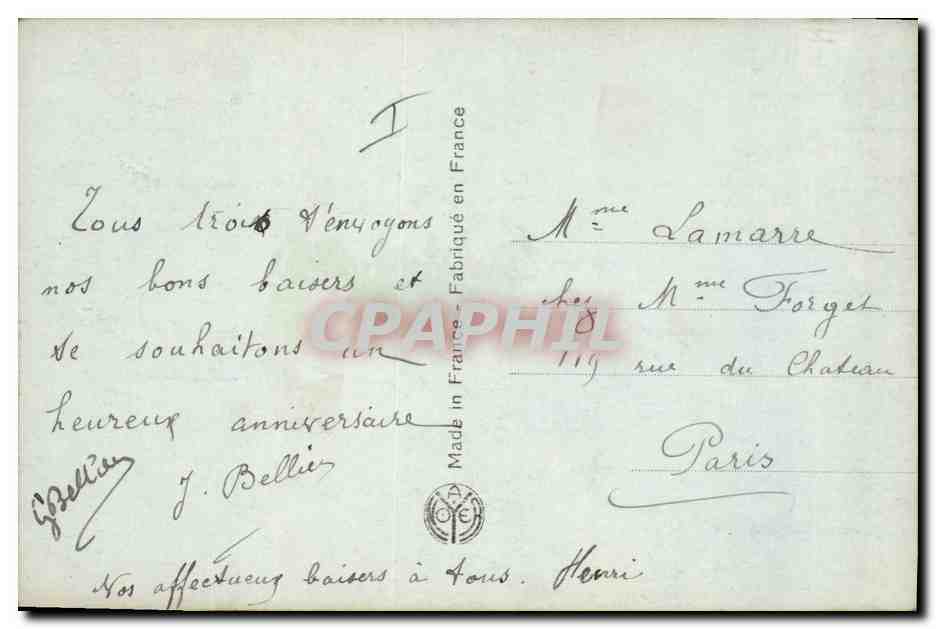 I
Tous trois t'envoyons
nos bons baisers et
te souhaitons un
heureux anniversaire
J. Bellier
G Bellier
Nos affectueux baisers à tous. Henri
Made in France - Fabriqué en France
Mme Lamarre
chez Mme Forget
119 rue du Chateau
Paris
CPAPHIL